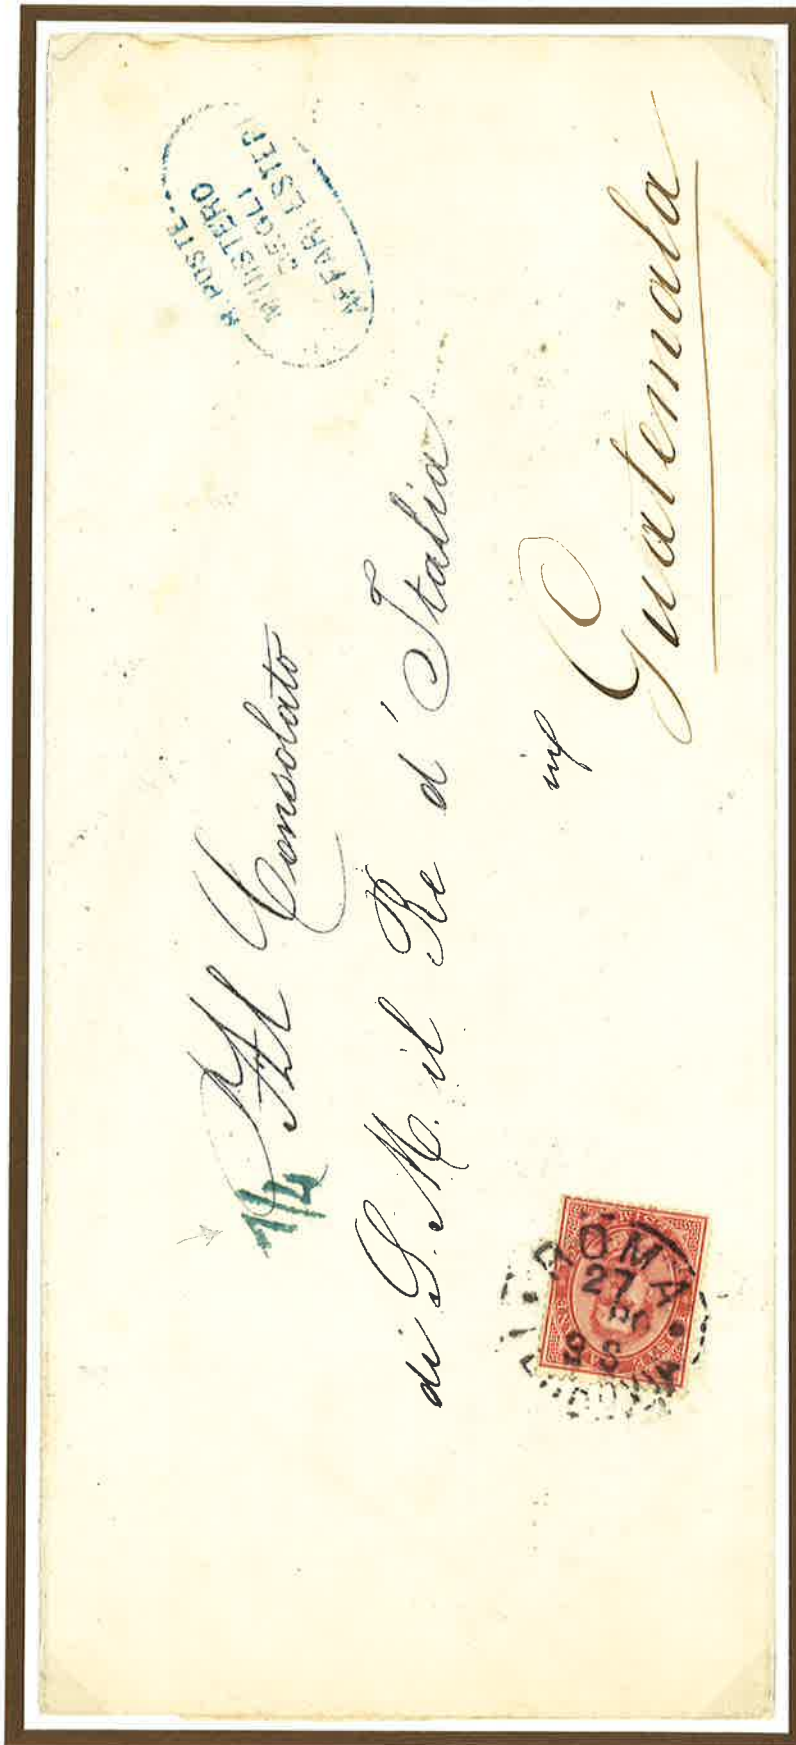 R. POSTE
MINISTERO
DEGLI
AFFARI ESTERI
1/4
Al Consolato
di S. M. il Re d'Italia
in
Guatemala
ROMA
27
9 S
FERROVIA